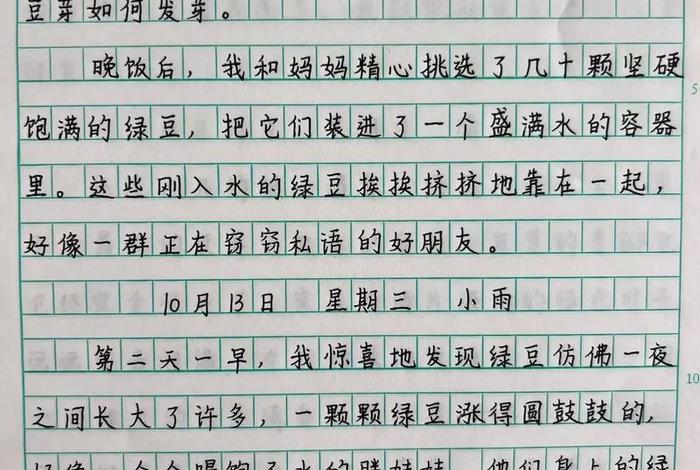 豆芽如何发芽。
晚饭后，我和妈妈精心挑选了几十颗坚硬
饱满的绿豆，把它们装进了一个盛满水的容器
里。这些刚入水的绿豆挨挨挤挤地靠在一起，
好像一群正在窃窃私语的好朋友。
10月13日 星期三 小雨
第二天一早，我惊喜地发现绿豆仿佛一夜
之间长大了许多，一颗颗绿豆涨得圆鼓鼓的，
好像一个个喝饱了水的胖娃娃，他们身上的绿
5
10